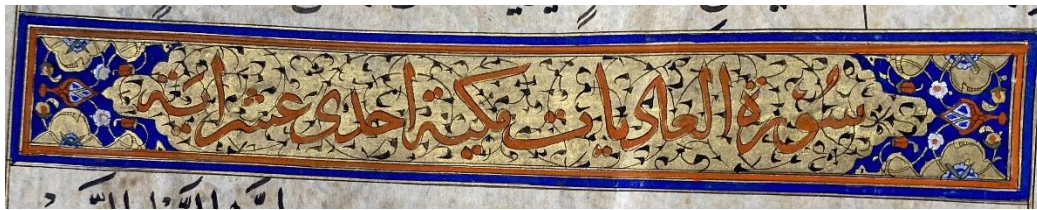 سُوْرَة العاديات مكية احدى عشر اية